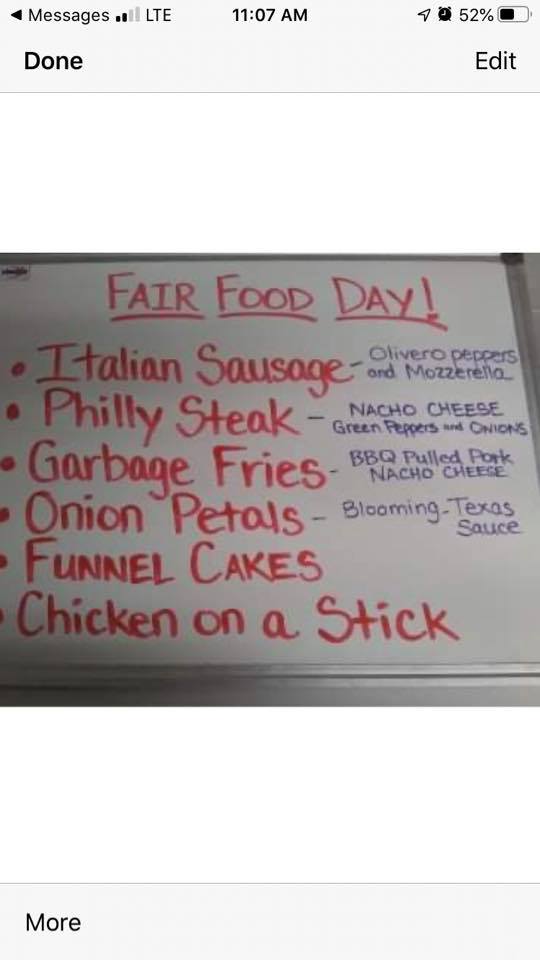 Messages LTE 11:07 AM 52%
Done Edit
FAIR FOOD DAY!
• Italian Sausage - Olivero peppers
and Mozzerella
• Philly Steak - NACHO CHEESE
Green Peppers and ONIONS
• Garbage Fries - BBQ Pulled Pork
NACHO CHEESE
• Onion Petals - Blooming-Texas
Sauce
• FUNNEL CAKES
• Chicken on a Stick
More